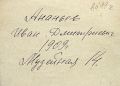 Ананьев
Иван Дмитриевич
1909.
Музейная 14.